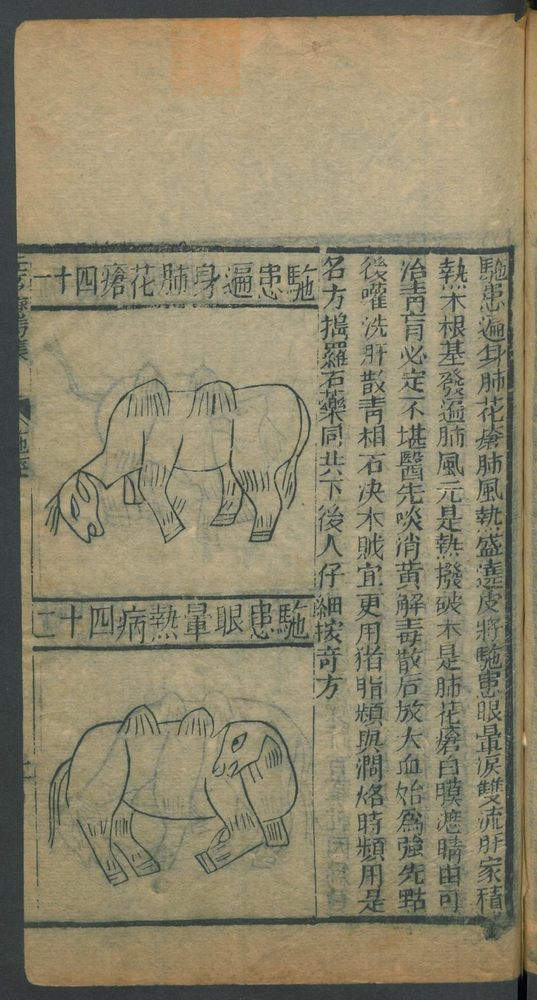 駞患遍身肺花瘡肺風熱盛達皮將駞患眼暈淚雙流肝家積
熱木根基發遍肺風元是熱撥破木是肺花瘡白膜遮睛由可
治青肓必定不堪醫先啖消黄解毒散后放大血始爲強先點
後嚾洗肝散青相石决木賊宜更用猪脂頻與潤烙時頻用是
名方搗羅石藥同共下後人仔細搽竒方
駞患遍身肺花瘡四十一
駞患眼暈熱病四十二